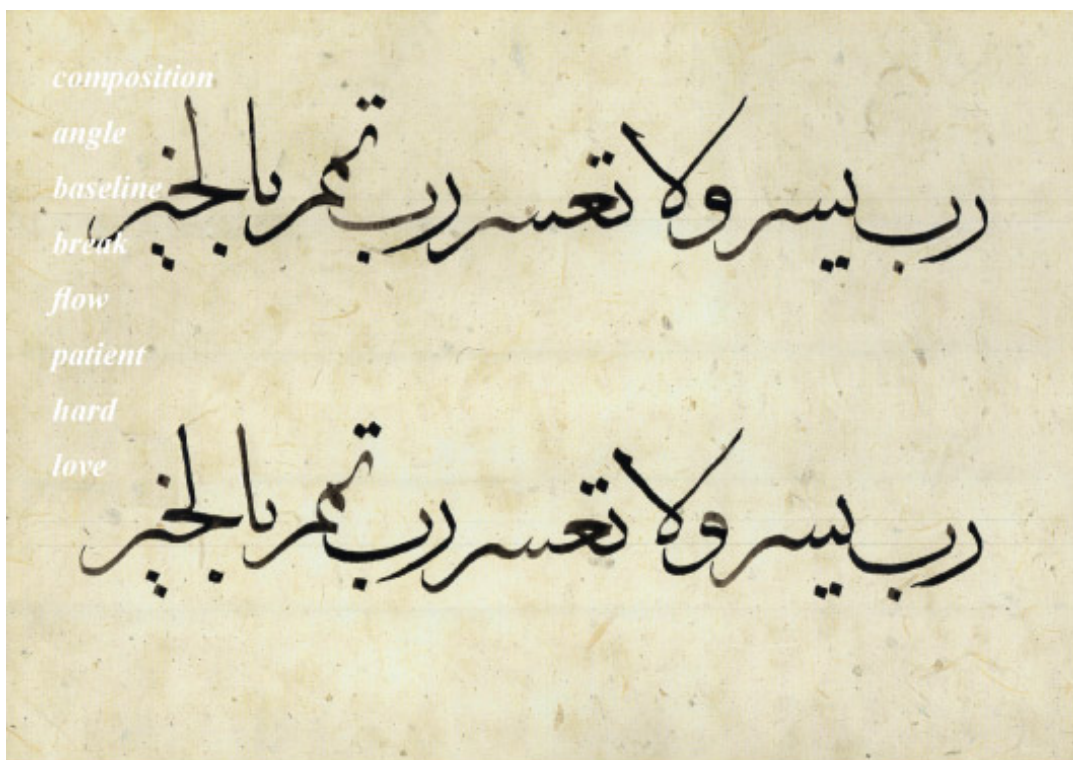 composition
angle
baseline
break
flow
patient
hard
love
رب يسر ولا تعسر رب تمم بالخير
رب يسر ولا تعسر رب تمم بالخير